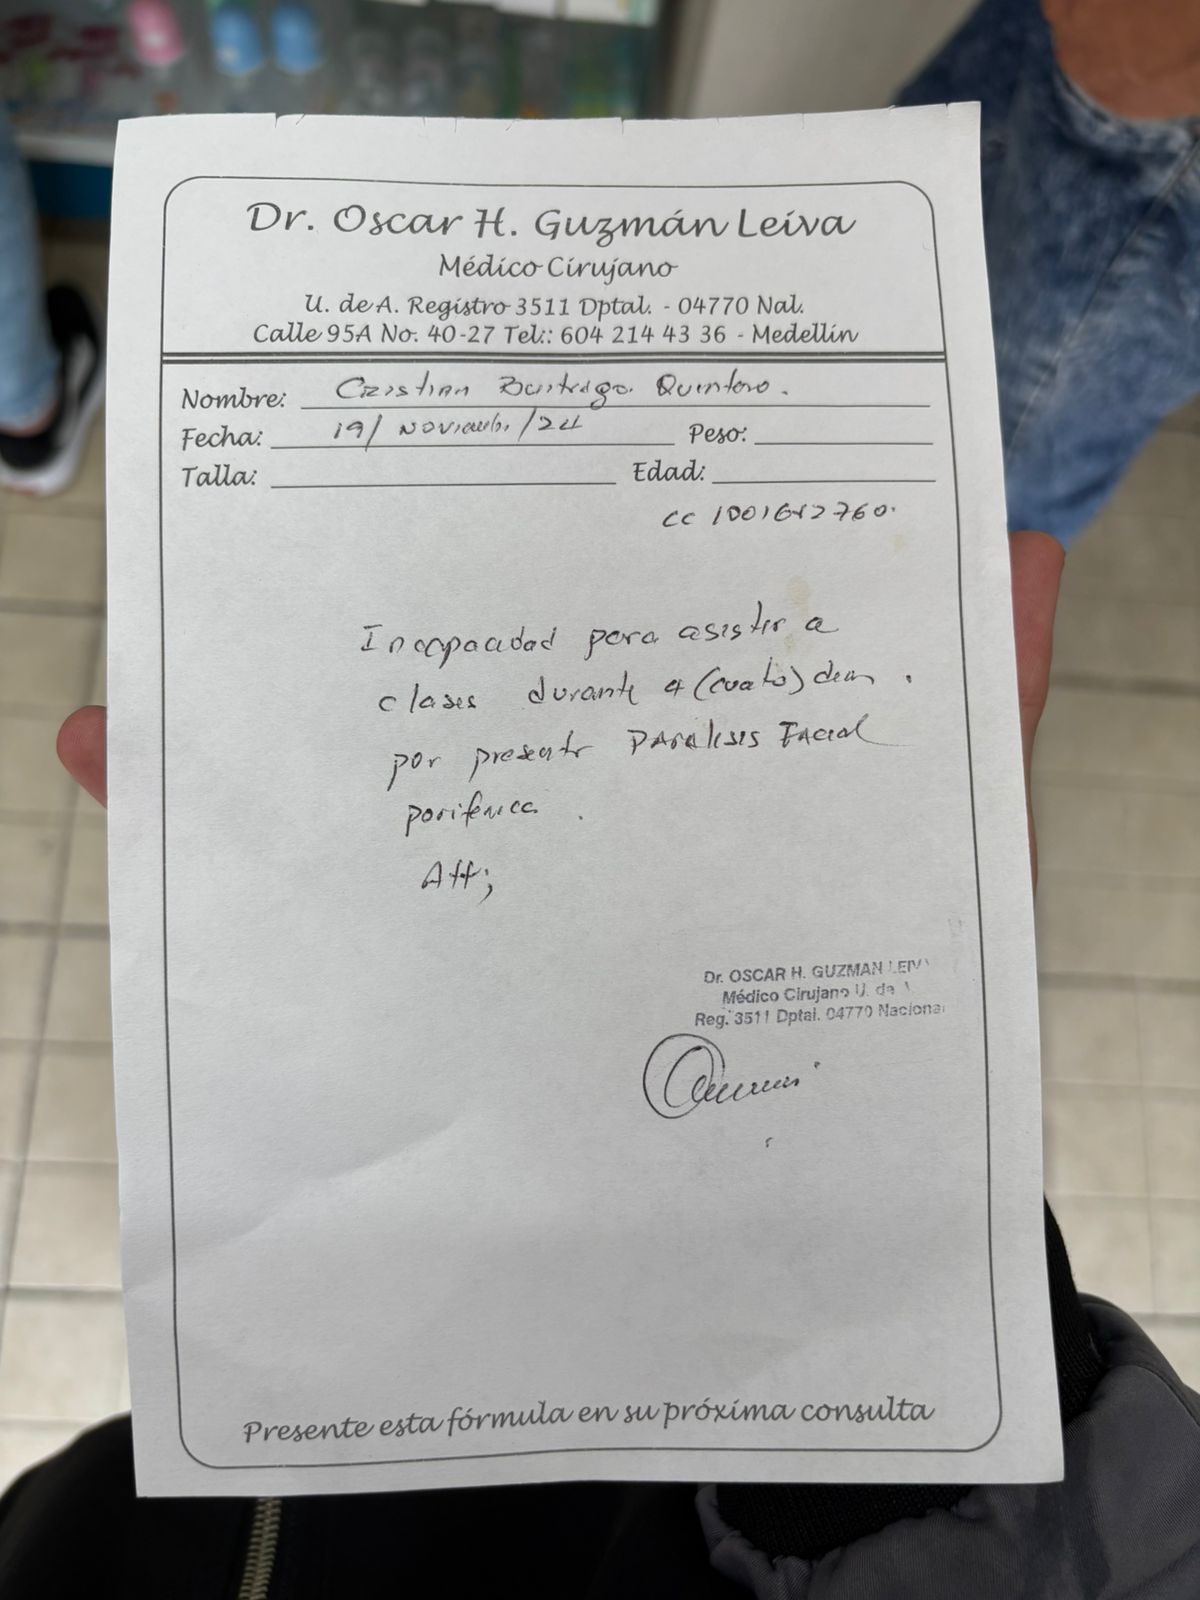 Dr. Oscar H. Guzmán Leiva
Médico Cirujano
U. de A. Registro 3511 Dptal. - 04770 Nal.
Calle 95A No. 40-27 Tel:: 604 214 43 36 - Medellín
Nombre: Cristian Buitrago Quintero.
Fecha: 19/ Noviembre /24 Peso:
Talla: Edad:
cc
Incapacidad para asistir a
clases durante 4 (cuatro) dias.
por presentar Paralisis Facial
periferica.
Att;
Dr. OSCAR H. GUZMAN LEIV
Médico Cirujano U. de
Reg. 3511 Dptal. 04770 Nacional
Presente esta fórmula en su próxima consulta